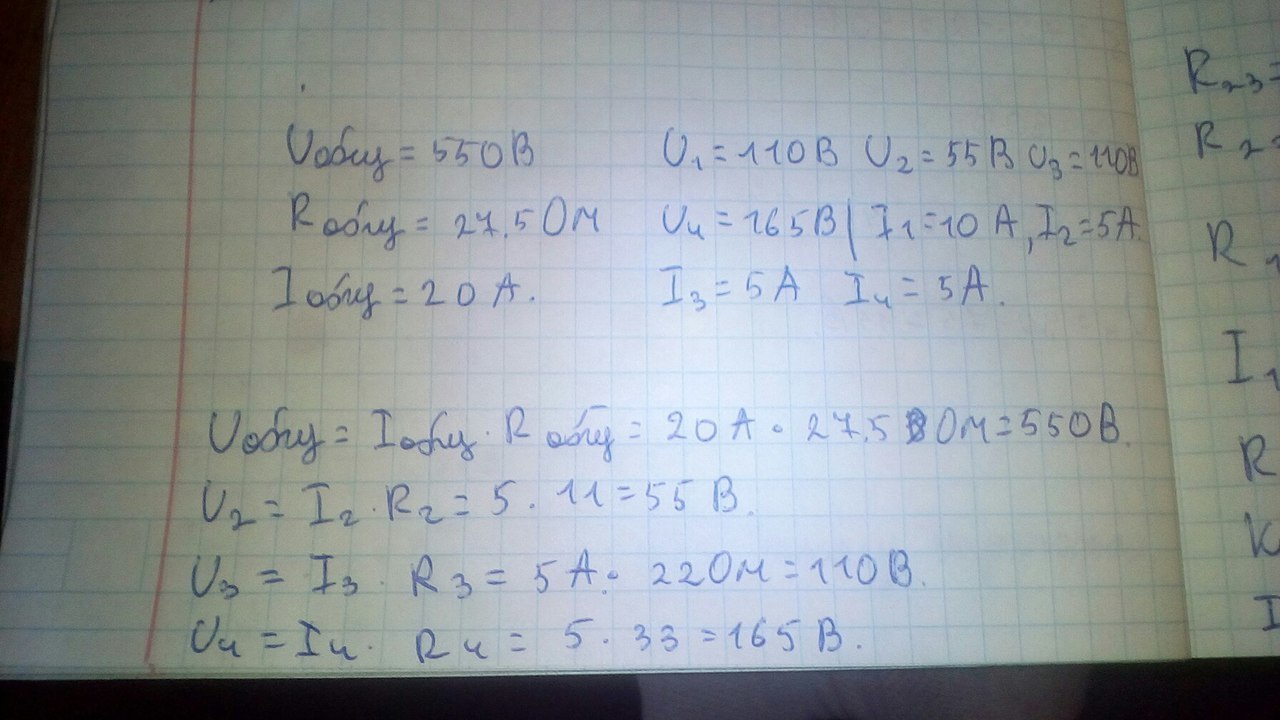 Uобщ = 550В U₁ = 110В U₂ = 55В U₃ = 110В
Rобщ = 27,5 Ом U₄ = 165В | I₁ = 10 А, I₂ = 5А.
Iобщ = 20 А. I₃ = 5А I₄ = 5А.
Uобщ = Iобщ · Rобщ = 20 А · 27,5 Ом = 550В.
U₂ = I₂ · R₂ = 5 · 11 = 55 В.
U₃ = I₃ · R₃ = 5А · 22Ом = 110В.
U₄ = I₄ · R₄ = 5 · 33 = 165 В.
R₂₃ =
R₂ =
R₁
I₁
R
I